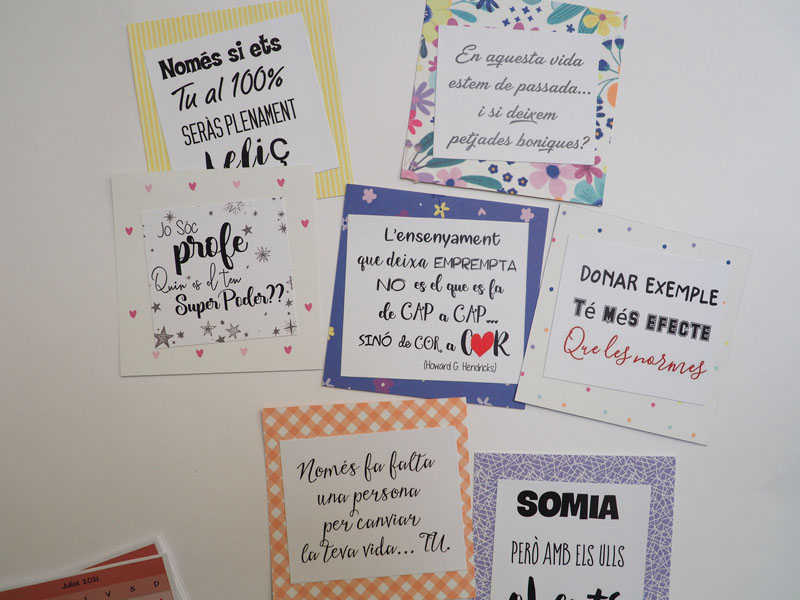 Només si ets
Tu al 100%
SERÀS PLENAMENT
feliç
En aquesta vida
estem de passada...
i si deixem
petjades boniques?
Jo Sóc
profe
Quin es el teu
SuperPoder??
L'ensenyament
que deixa EMPREMPTA
NO es el que es fa
de CAP a CAP...
SINÓ de COR a COR
(Howard G. Hendricks)
DONAR EXEMPLE
Té Més EFECTE
Que les normes
Només fa falta
una persona
per canviar
la teva vida... TU.
SOMIA
PERÒ AMB ELS ULLS
Juliol 2021
V S D